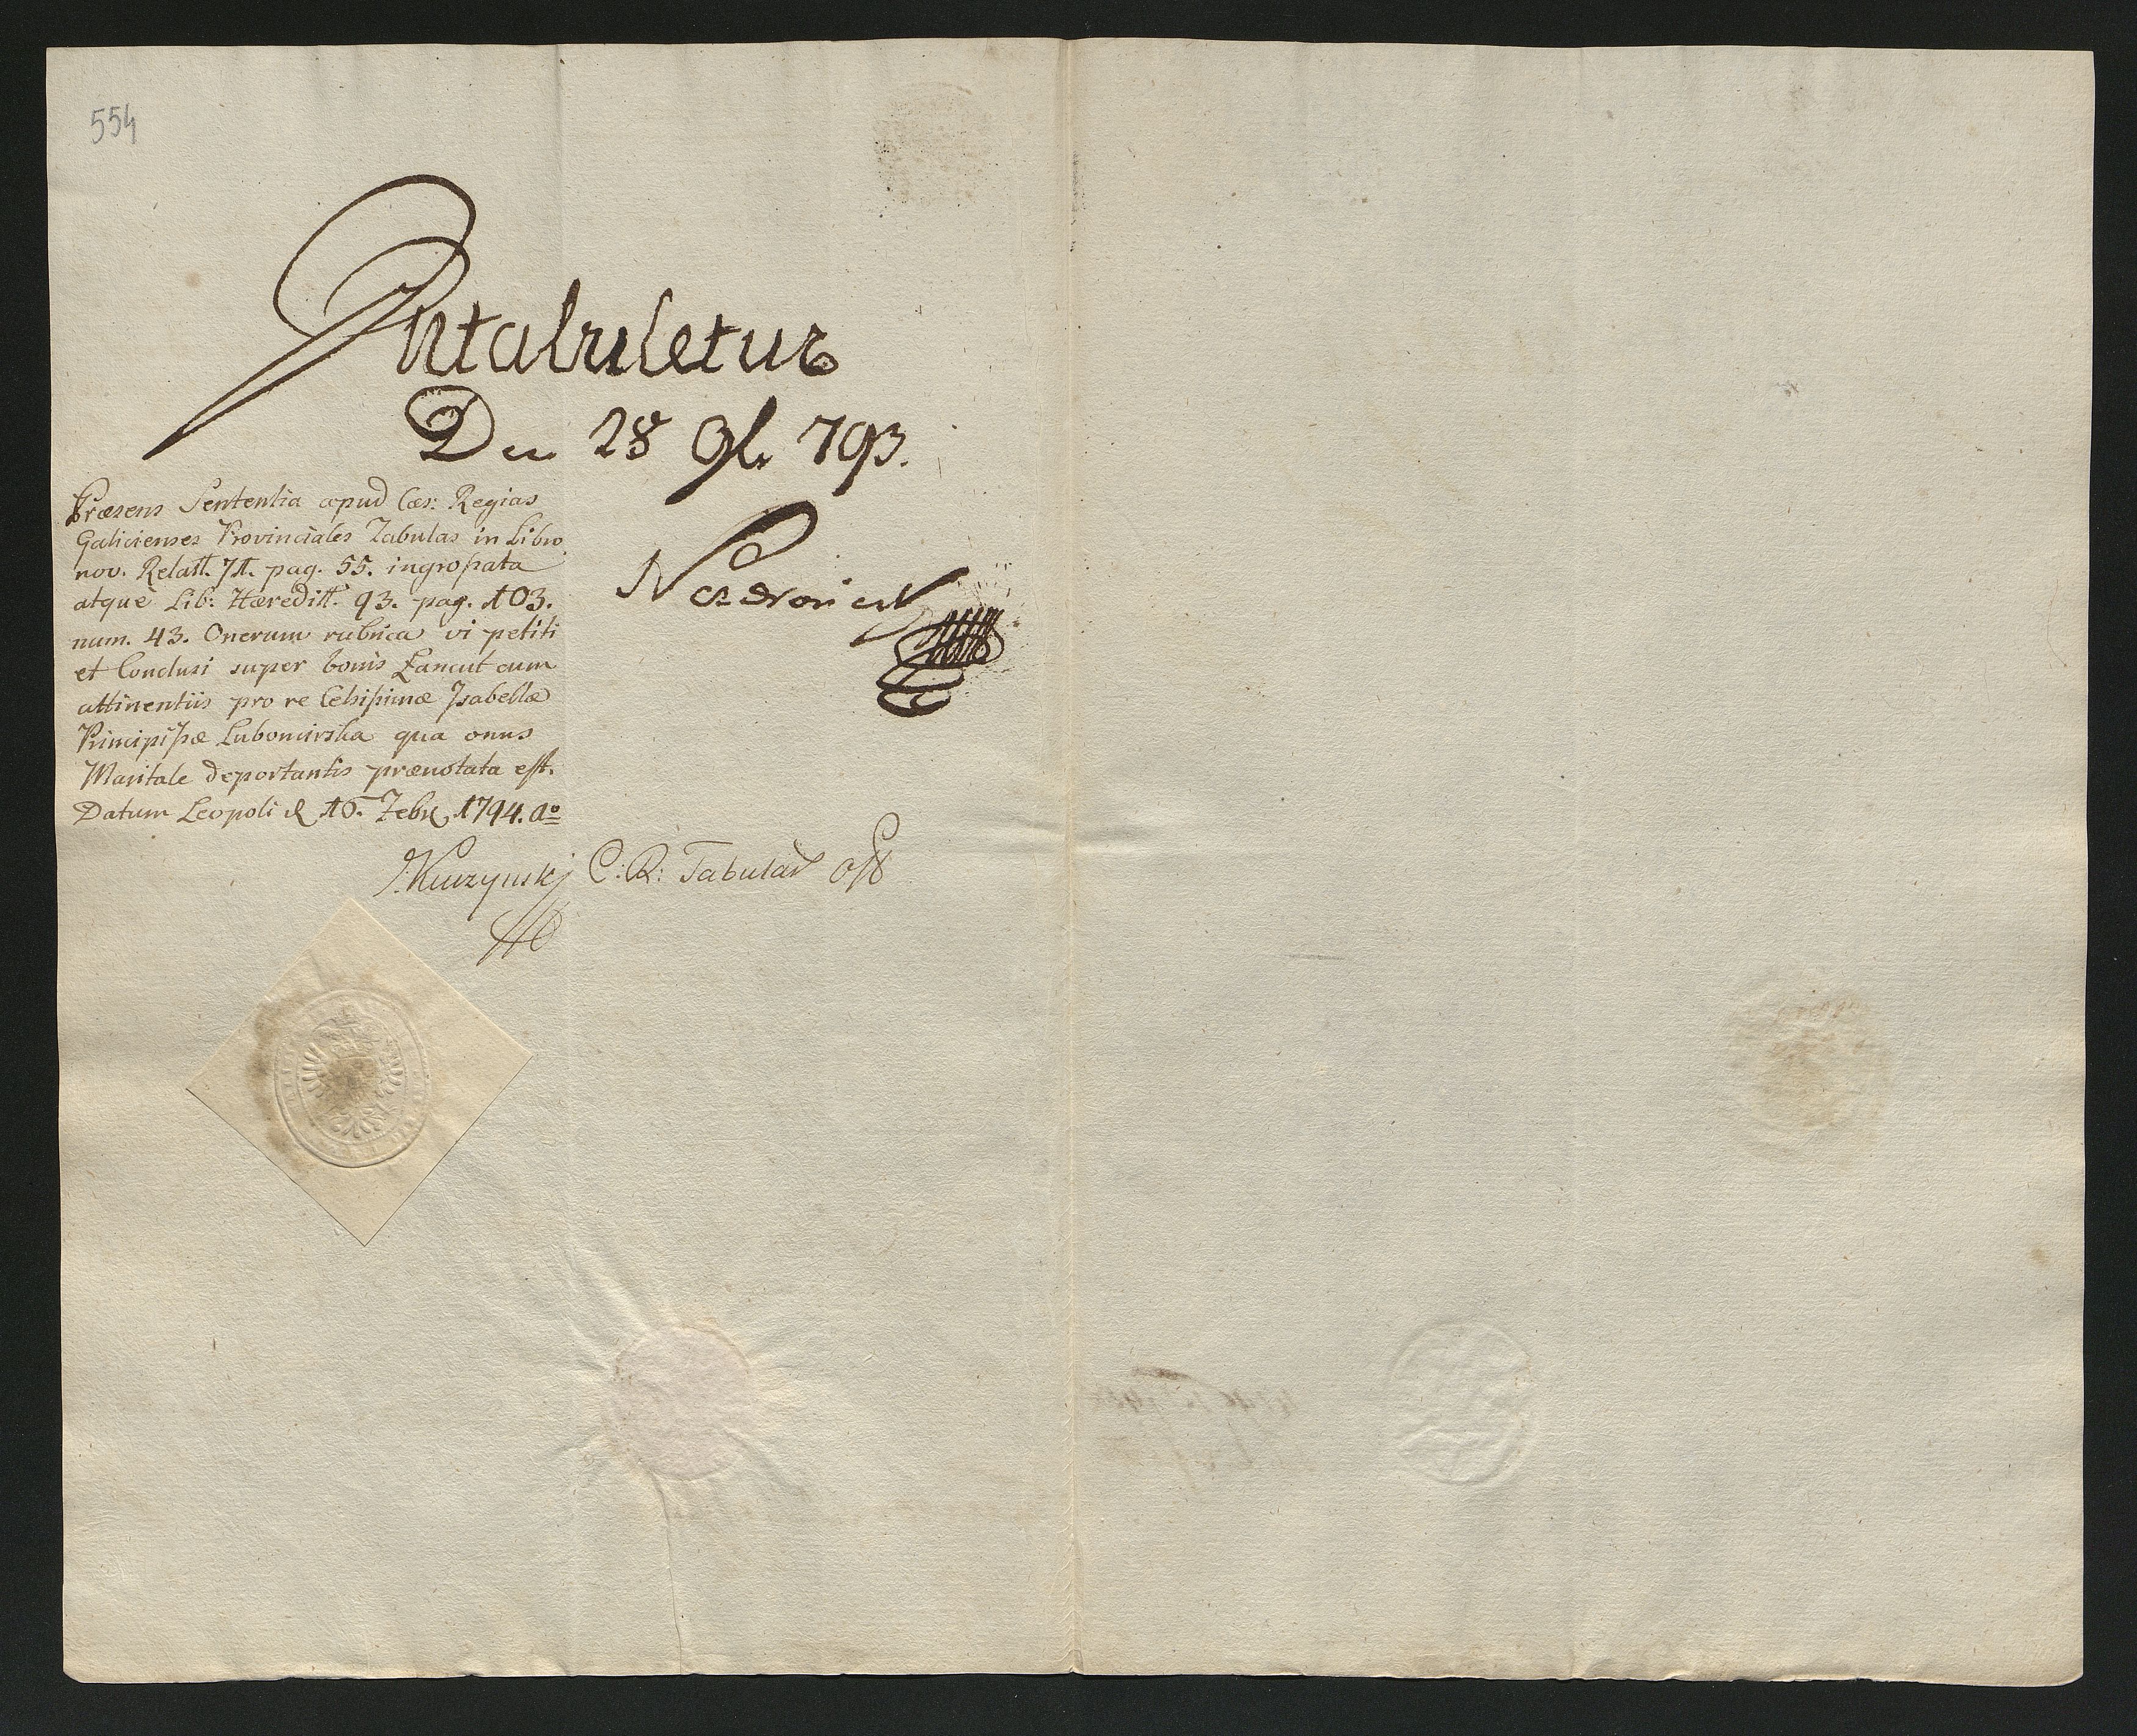 554
Intabuletur
Die 28 9br 793.
Præsens Sententia apud Cæs: Regias
Galicienses Provinciales Tabulas in Libro
nov. Relatt. 71. pag. 55. ingrossata
atque Lib: Hæreditt. 93. pag. 103.
num. 43. Onerum rubrica vi petiti
et Conclusi super bonis Łancut cum
attinentiis pro re Celsissimæ Isabellæ
Principissæ Lubomirska qua onus
Maritale deportantis prænotata est.
Datum Leopoli d 10. Febr 1794. ao
J. Kurzynskj C: R: Tabular